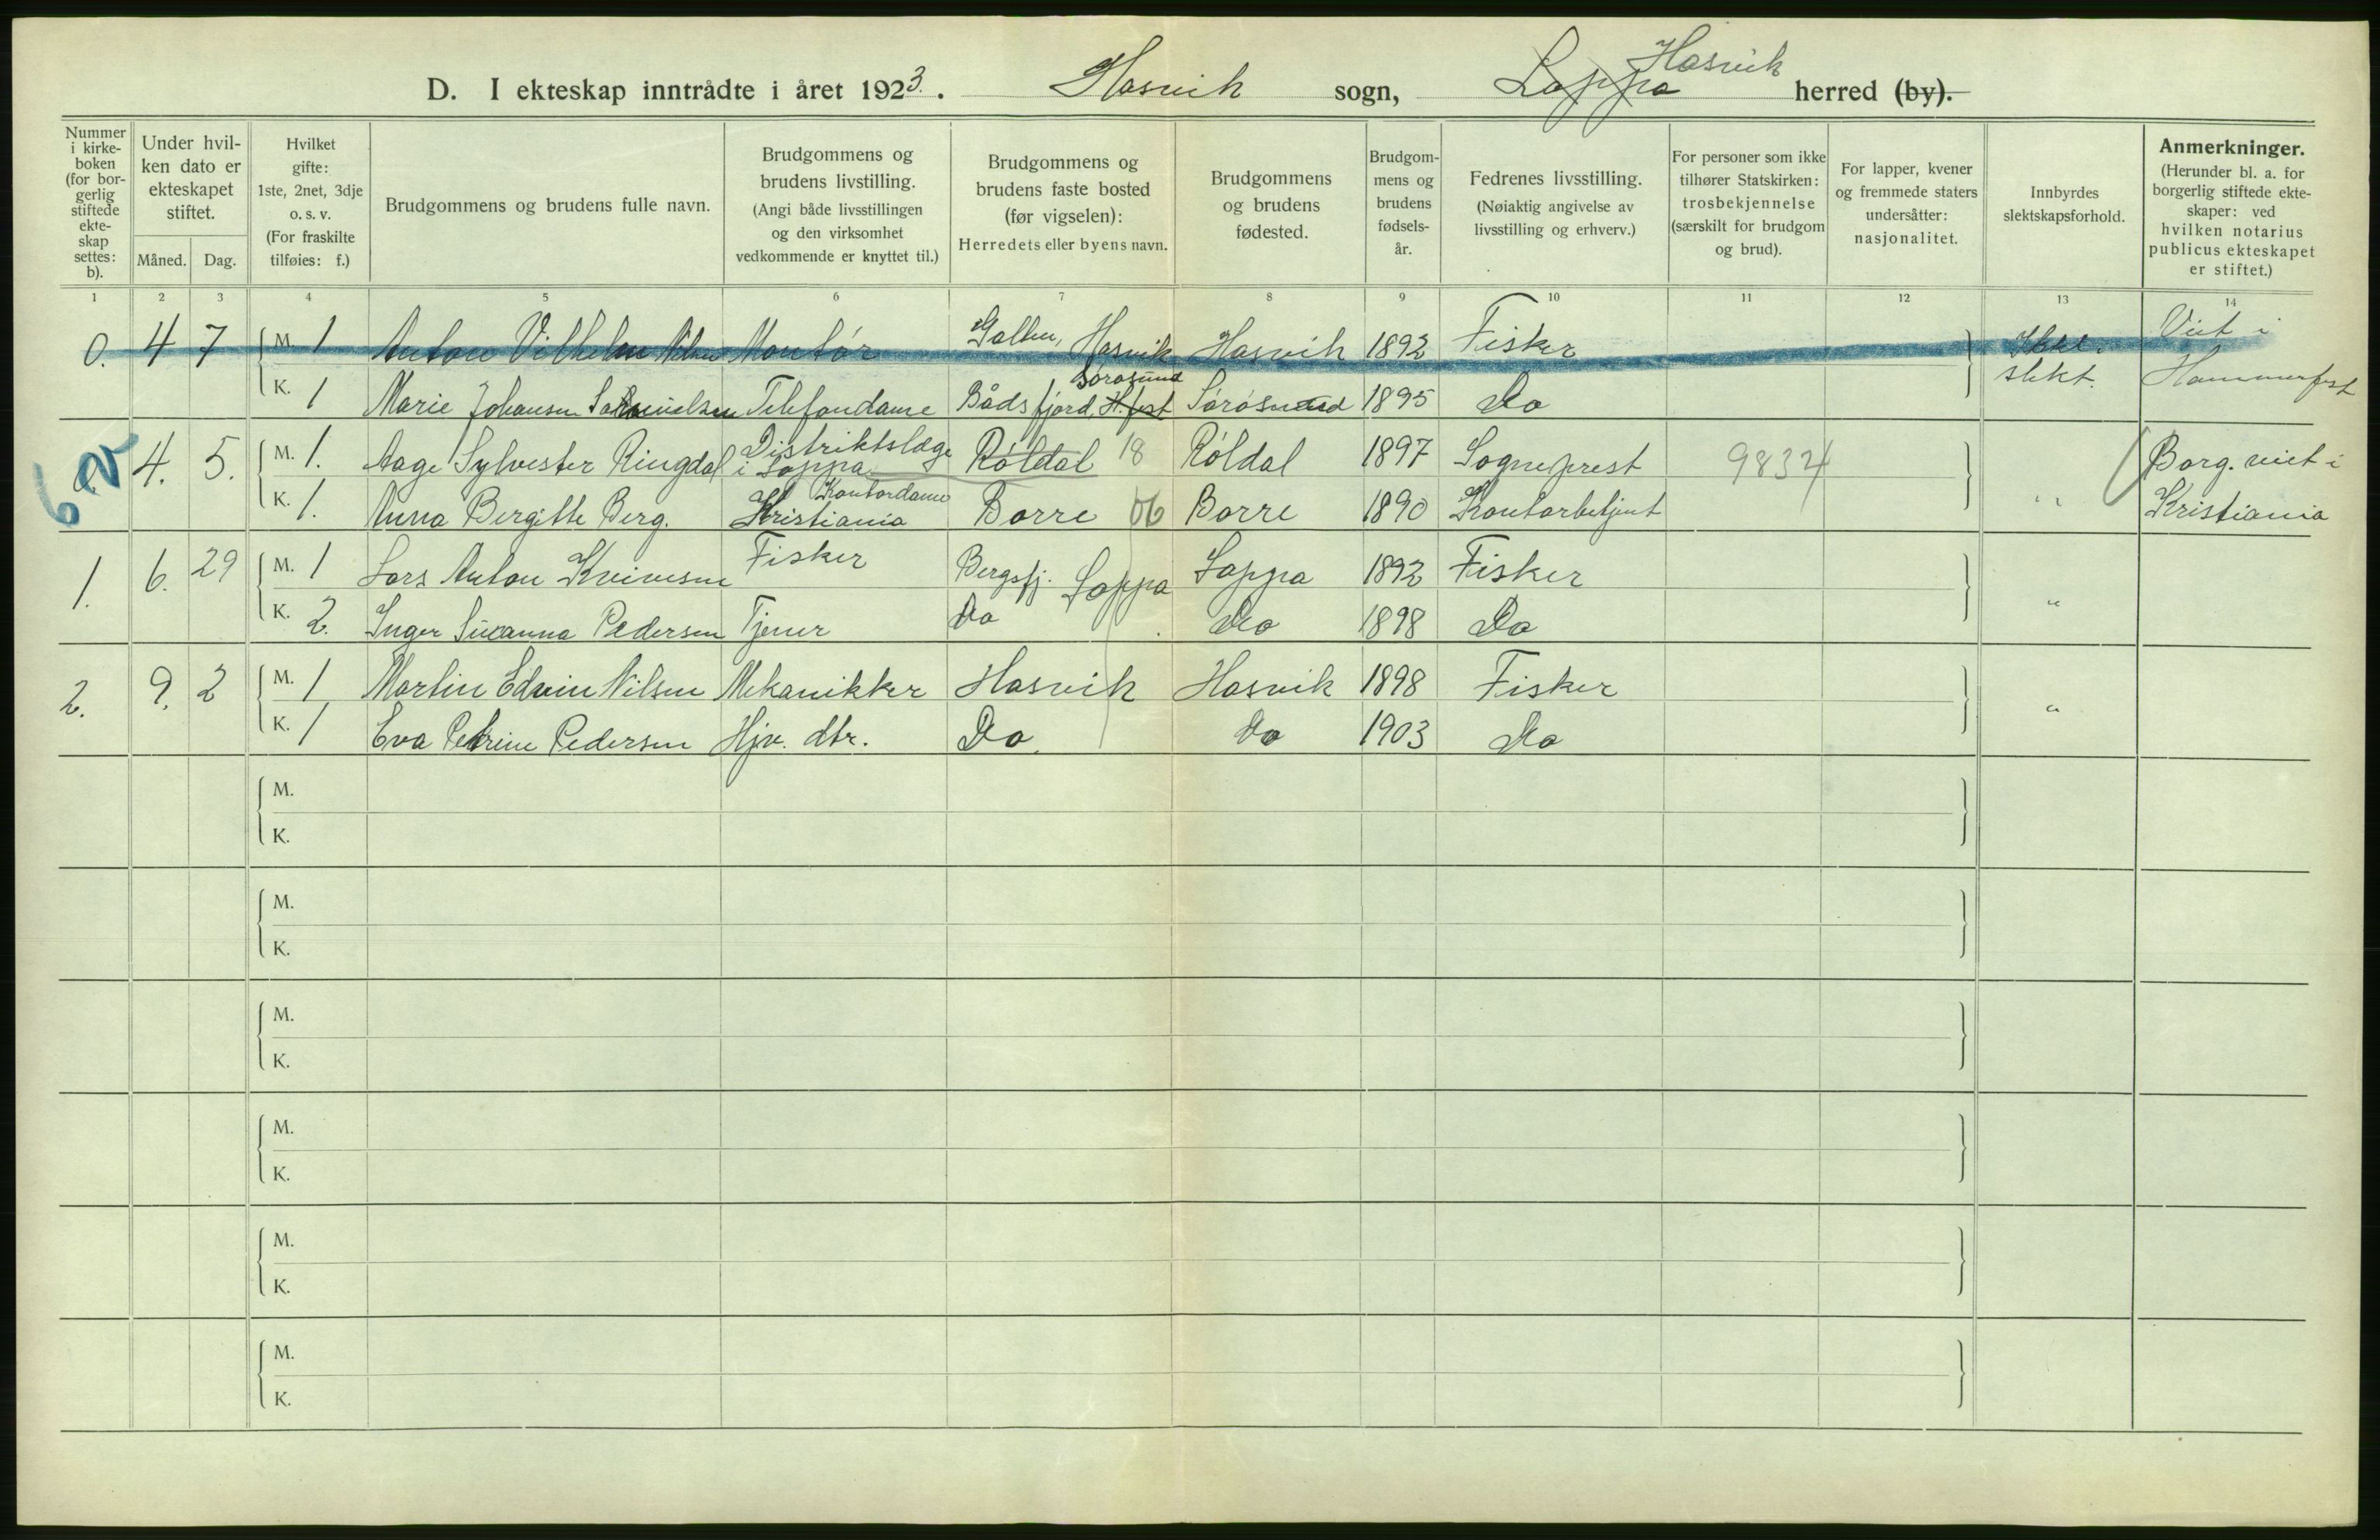 D. I ekteskap inntrådte i året 1923. Hasvik sogn, Loppa Hasvik herred (by).
Nummer i kirkeboken (for borgerlig stiftede ekteskap settes: b).
Under hvilken dato er ekteskapet stiftet.
Måned. Dag.
Hvilket gifte: 1ste, 2net, 3dje o. s. v. (For fraskilte tilføies: f.)
Brudgommens og brudens fulle navn.
Brudgommens og brudens livstilling. (Angi både livsstillingen og den virksomhet vedkommende er knyttet til.)
Brudgommens og brudens faste bosted (før vigselen): Herredets eller byens navn.
Brudgommens og brudens fødested.
Brudgommens og brudens fødsels-år.
Fedrenes livsstilling. (Nøiaktig angivelse av livsstilling og erhverv.)
For personer som ikke tilhører Statskirken: trosbekjennelse (særskilt for brudgom og brud).
For lapper, kvener og fremmede staters undersåtter: nasjonalitet.
Innbyrdes slektskapsforhold.
Anmerkninger. (Herunder bl. a. for borgerlig stiftede ekteskaper: ved hvilken notarius publicus ekteskapet er stiftet.)
1 2 3 4 5 6 7 8 9 10 11 12 13 14
0. 4 7 M. 1 Anton Vilhelm Nilsen Montør Galten, Hasvik Hasvik 1892 Fisker Ikke i slekt. Viet i Hammerfest
K. 1 Marie Johansen Samuelsen Telefondame Bådsfjord, H.fest Sørøsund Sørøsund 1895 Do
6 4. 5. M. 1. Aage Sylvester Ringdal Distriktslæge i Loppa Røldal 18 Røldal 1897 Sogneprest 9834 " Borg. viet i Kristiania
K. 1. Anna Bergitte Berg. Kontordame Kristiania Borre 06 Borre 1890 Kontorbetjent
1. 6. 29 M. 1 Lars Anton Kvivesen Fisker Bergsfj. Loppa Loppa 1892 Fisker "
K. 2. Inger Susanna Pedersen Tjener Do Do 1898 Do
2. 9. 2 M. 1 Martin Edvin Nilsen Mekanikker Hasvik Hasvik 1898 Fisker "
K. 1 Eva Petrine Pedersen Hjv. dtr. Do. Do 1903 Do
M.
K.
M.
K.
M.
K.
M.
K.
M.
K.
M.
K.